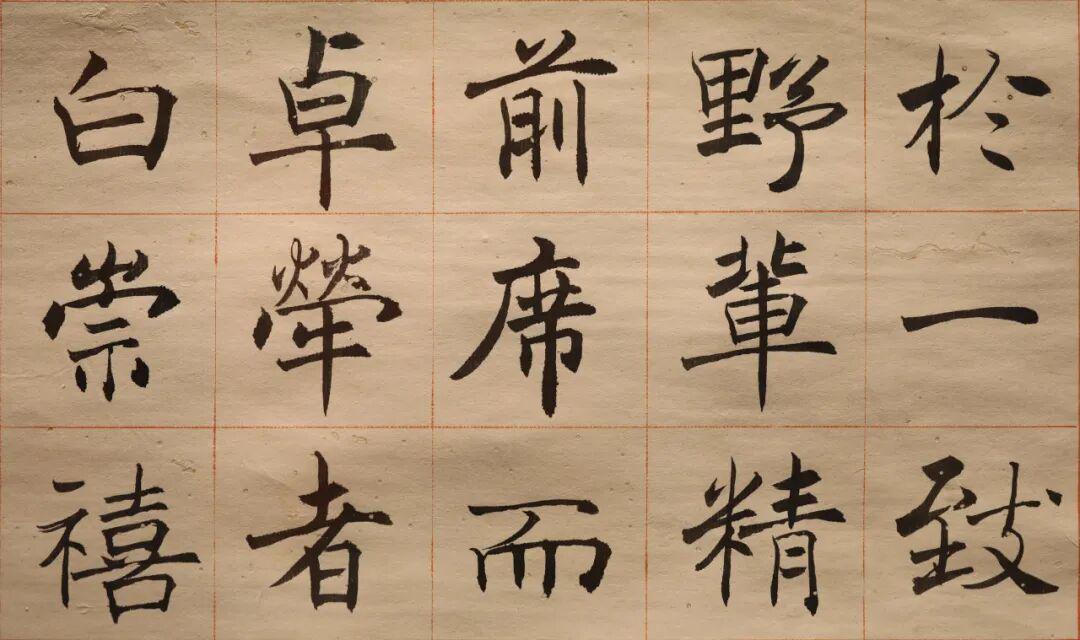 於一致
野輩精
前席而
卓犖者
白崇禧